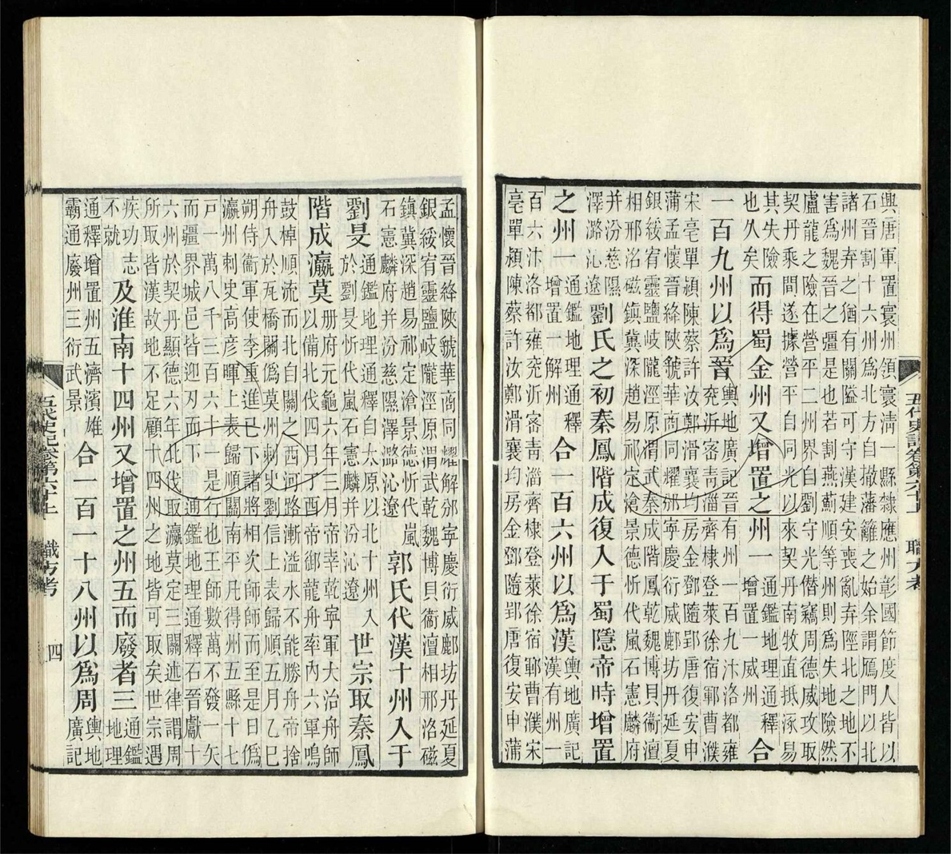 興唐軍置寰州領寰清一縣隸應州彰國節度人皆以
石晉割十六州爲北方自撤藩籬之始余謂鴈門以北
諸州弃之猶有關隘可守漢建安喪亂弃陘北之地不
害爲魏晉之彊是也若割燕薊順等州則爲失地險然
盧龍之險在營平二州界自劉守光僭竊周德威攻取
契丹乘間遂據營平自同光以來契丹南牧直抵涿易
其失險
也久矣
而得蜀金州又增置之州一
通鑑地理通釋
增置一威州
合
一百九州以爲晉
輿地廣記晉有州一百九汴洛都雍
兗沂密青淄齊棣登萊徐宿鄆曹濮
宋亳單潁陳蔡許汝鄭滑襄均房金鄧隨郢唐復安申
蒲孟懷晉絳陝虢華商同耀邠寧慶衍威鄜坊丹延夏
銀綏宥靈鹽岐隴涇原渭武秦成階鳳乾魏博貝衞澶
相邢洺磁鎮冀深趙易祁定滄景德忻代嵐石憲麟府
并汾慈隰
澤潞沁遼
劉氏之初秦鳳階成復入于蜀隱帝時增置
之州一
通鑑地理通釋
增置一解州
合一百六州以爲漢
輿地廣記
漢有州一
百六汴洛都雍兗沂密青淄齊棣登萊徐宿鄆曹濮宋
亳單潁陳蔡許汝鄭滑襄均房金鄧隨郢唐復安申蒲
孟懷晉絳陝虢華商同耀解邠寧慶衍威鄜坊丹延夏
銀綏宥靈鹽岐隴涇原渭武乾魏博貝衞澶相邢洺磁
鎮冀深趙易祁定滄景德忻代嵐
石憲麟府并汾慈隰澤潞沁遼
郭氏代漢十州入于
劉旻
通鑑地理通釋自太原以北十州入
於劉旻忻代嵐石憲麟并汾沁遼
世宗取秦鳳
階成瀛莫
册府元龜六年三月帝幸乾寧軍大治舟師
以備北伐四月丁酉帝御龍舟率內六軍鳴
鼓棹順流而北自關之西河路漸溢水不能勝舟帝捨
舟入於瓦橋關僞莫州刺史劉信上表歸順五月乙巳
朔侍衞軍使李重進已下諸將相次師師而至是日僞
瀛州刺史高彥暉上表歸順關南平凡得州五縣十七
戶一萬八千三百六十是行也王師數萬不發一矢
而疆界城邑皆迎刃而下 通鑑地理通釋石晉獻十
六州於契丹顯德六年北伐取瀛莫定三關述律謂周
所取皆漢故地不足顧十四州之地皆可取矣世宗遇
疾功志
不就
及淮南十四州又增置之州五而廢者三
通鑑
地理
通釋增置州五濟濱雄
霸通廢州三衍武景
合一百一十八州以爲周
輿地
廣記
五代史記卷第六十上 職方考 四